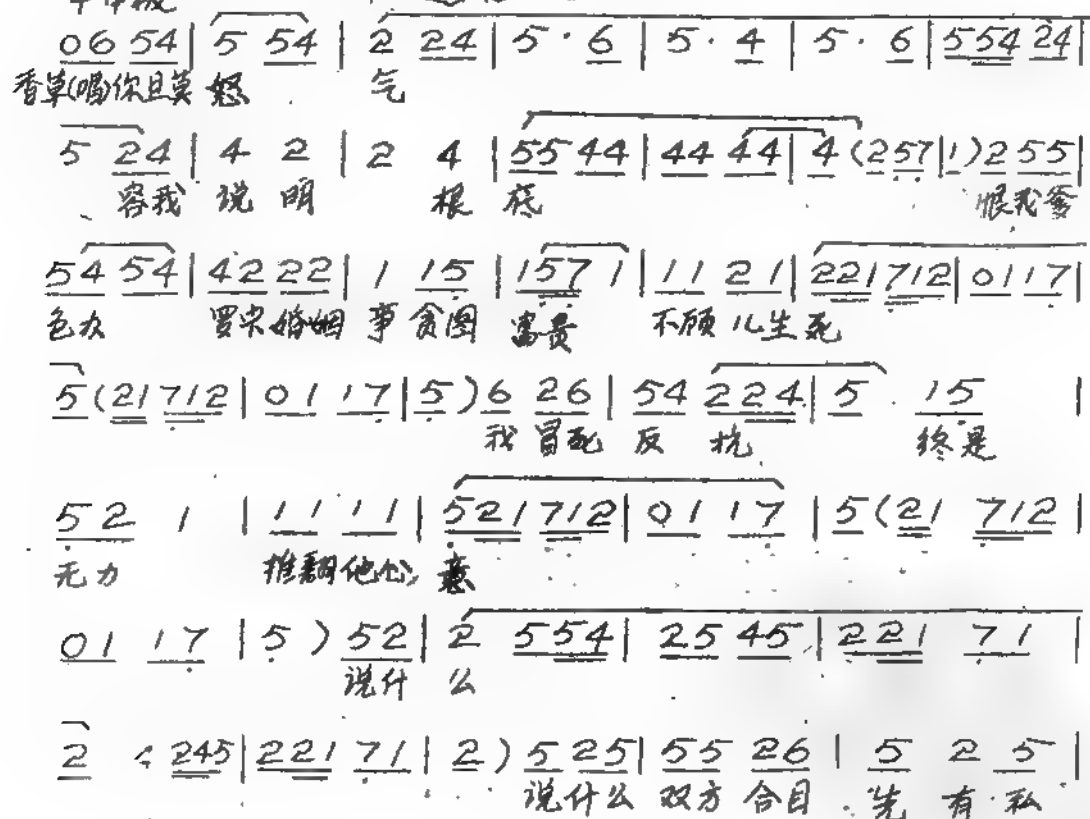 06 54 | 5 54 | 2 24 | 5 · 6 | 5 · 4 | 5 · 6 | 554 24 |
香草(唱)你且莫 怒 气
5 24 | 4 2 | 2 4 | 55 44 | 44 44 | 4 (2 57 | 1) 2 55 |
容我 说 明 根 底 恨我爹
54 54 | 42 22 | 1 15 | 157 1 | 11 21 | 221 712 | 01 17 |
包办 婚姻 事 贪图 富贵 不顾 儿生死
5 (21 712 | 01 17 | 5) 6 26 | 54 224 | 5 15 |
我 冒死 反 抗 终是
52 1 | 11 11 | 521 712 | 01 17 | 5 (21 712 |
无力 推翻他心 意
01 17 | 5) 52 | 2 554 | 25 45 | 221 71 |
说什 么
2 ( 245 | 221 71 | 2) 5 25 | 55 26 | 5 2 5 |
说什么 双方 合目 先 有 私